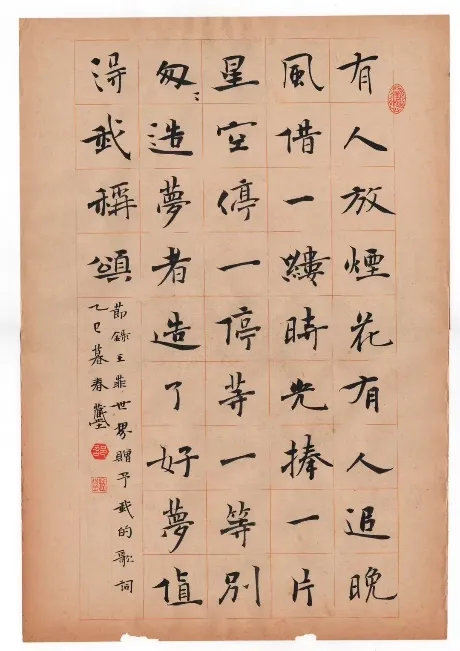 有人放煙花有人追晚
風借一縷時光捧一片
星空停一停等一等別
匆〻造夢者造了好夢值
得我稱頌
節錄王菲世界贈予我的歌詞
乙巳暮春